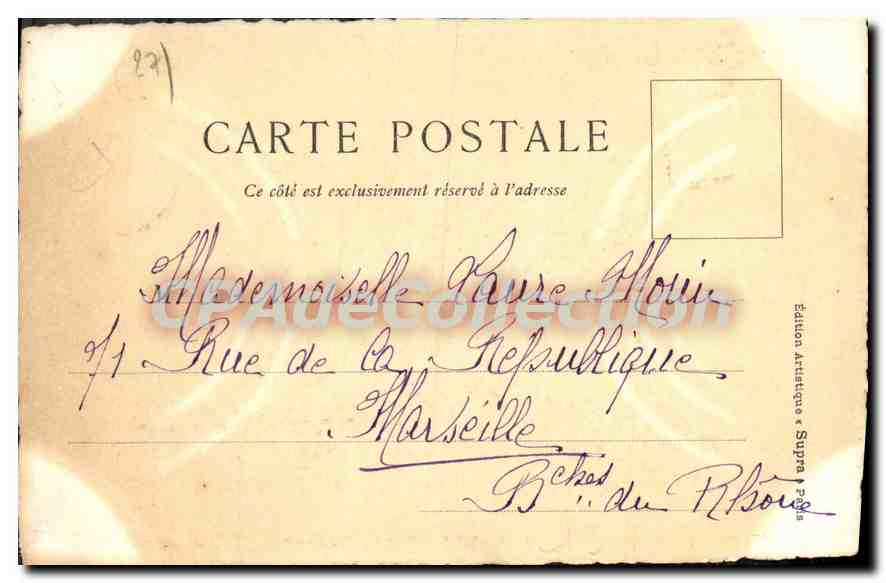 27)
CARTE POSTALE
Ce côté est exclusivement réservé à l'adresse
Mademoiselle Laure
71 Rue de la République
Marseille
Bches du Rhône
Édition Artistique « Supra » Paris
CPAdeCollection